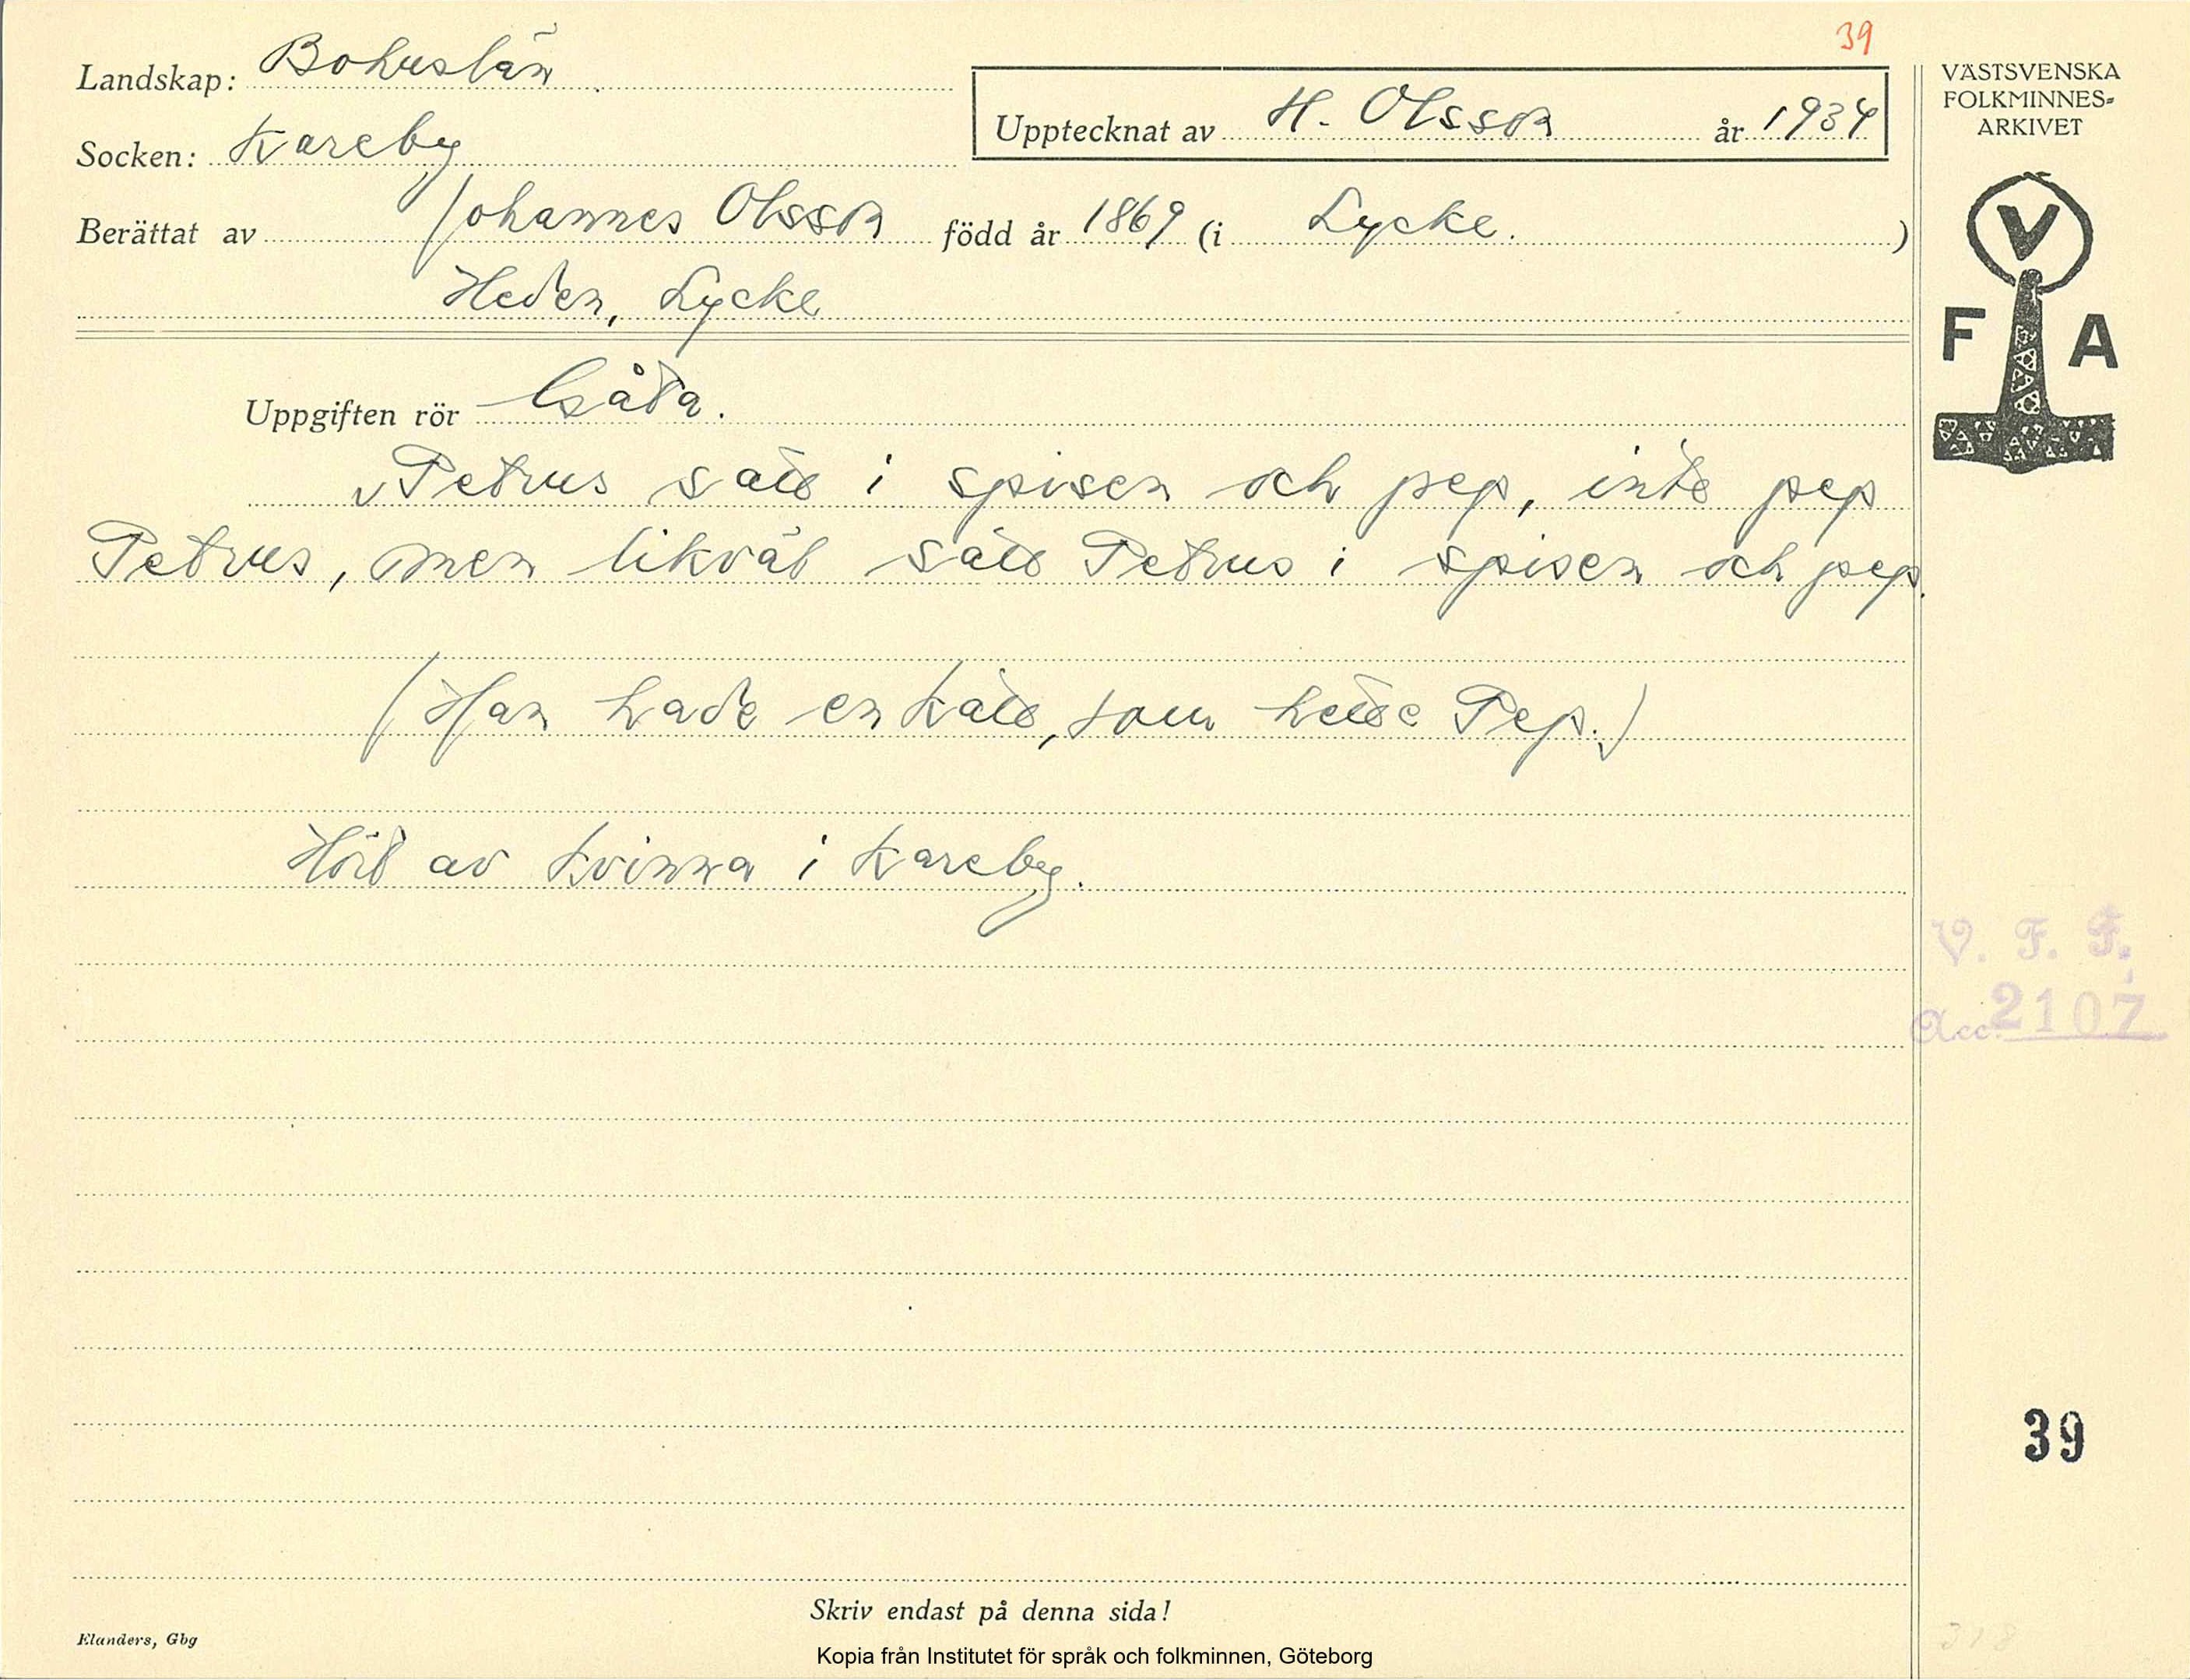 39
Landskap: Bohuslän
Upptecknat av H. Olsson år 1934
Socken: Kareby
Berättat av Johannes Olsson född år 1869 (i Lycke.)
Heden, Lycke
Uppgiften rör Gåta.
Petrus satt i spisen och pep, inte pep
Petrus, men likväl satt Petrus i spisen och pep.
(Han hade en katt, som hette Pep.)
Hört av kvinna i Kareby.
VÄSTSVENSKA
FOLKMINNES-
ARKIVET
V
F A
V. F. F.
Acc. 2107
39
Skriv endast på denna sida!
Elanders, Gbg
Kopia från Institutet för språk och folkminnen, Göteborg